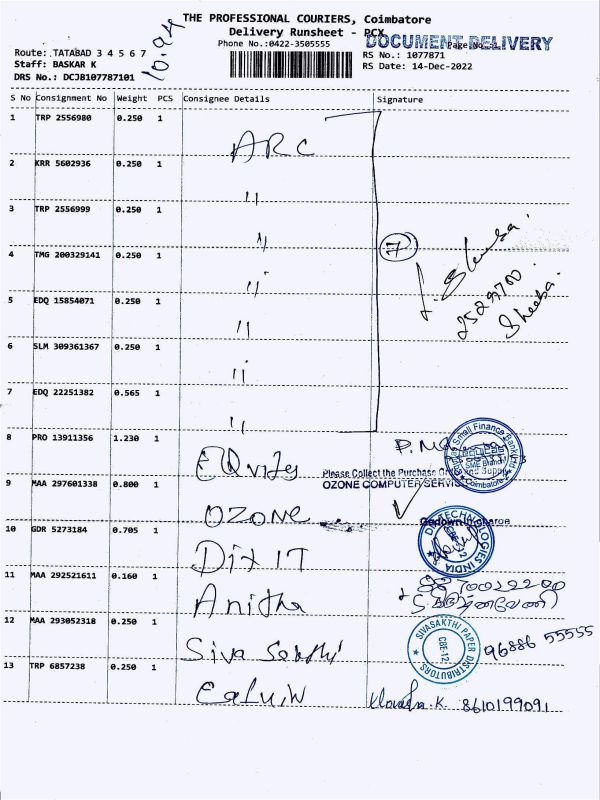 THE PROFESSIONAL COURIERS, Coimbatore
Delivery Runsheet - PCX
DOCUMENT DELIVERY
Phone No.:0422-3505555
Page No
Route: TATABAD 3 4 5 6 7
RS No.: 1077871
Staff: BASKAR K
RS Date: 14-Dec-2022
DRS No.: DCJB107787101
S No Consignment No Weight PCS Consignee Details Signature
1 TRP 2556980 0.250 1 ARC
2 KRR 5602936 0.250 1 "
3 TRP 2556999 0.250 1 "
7
4 TMG 200329141 0.250 1 "
2529700
Sheeba
5 EDQ 15854071 0.250 1 "
6 SLM 309361367 0.250 1 "
7 EDQ 22251382 0.565 1 "
8 PRO 13911356 1.230 1 Equitas
Small Finance Bank Ltd
SME Branch
Coimbatore
Please Collect the Purchase
OZONE COMPUTER SERVICE
9 MAA 297601338 0.800 1 OZONE
Godown Incharge
10 GDR 5273184 0.705 1 Dix IT
TECHNOLOGIES INDIA
11 MAA 292521611 0.160 1 Anitha
12 MAA 293052318 0.250 1 Siva Sakthi
SIVASAKTHI PAPER DISTRIBUTORS
CBE-12
96886 55555
13 TRP 6857238 0.250 1
K. 8610199091